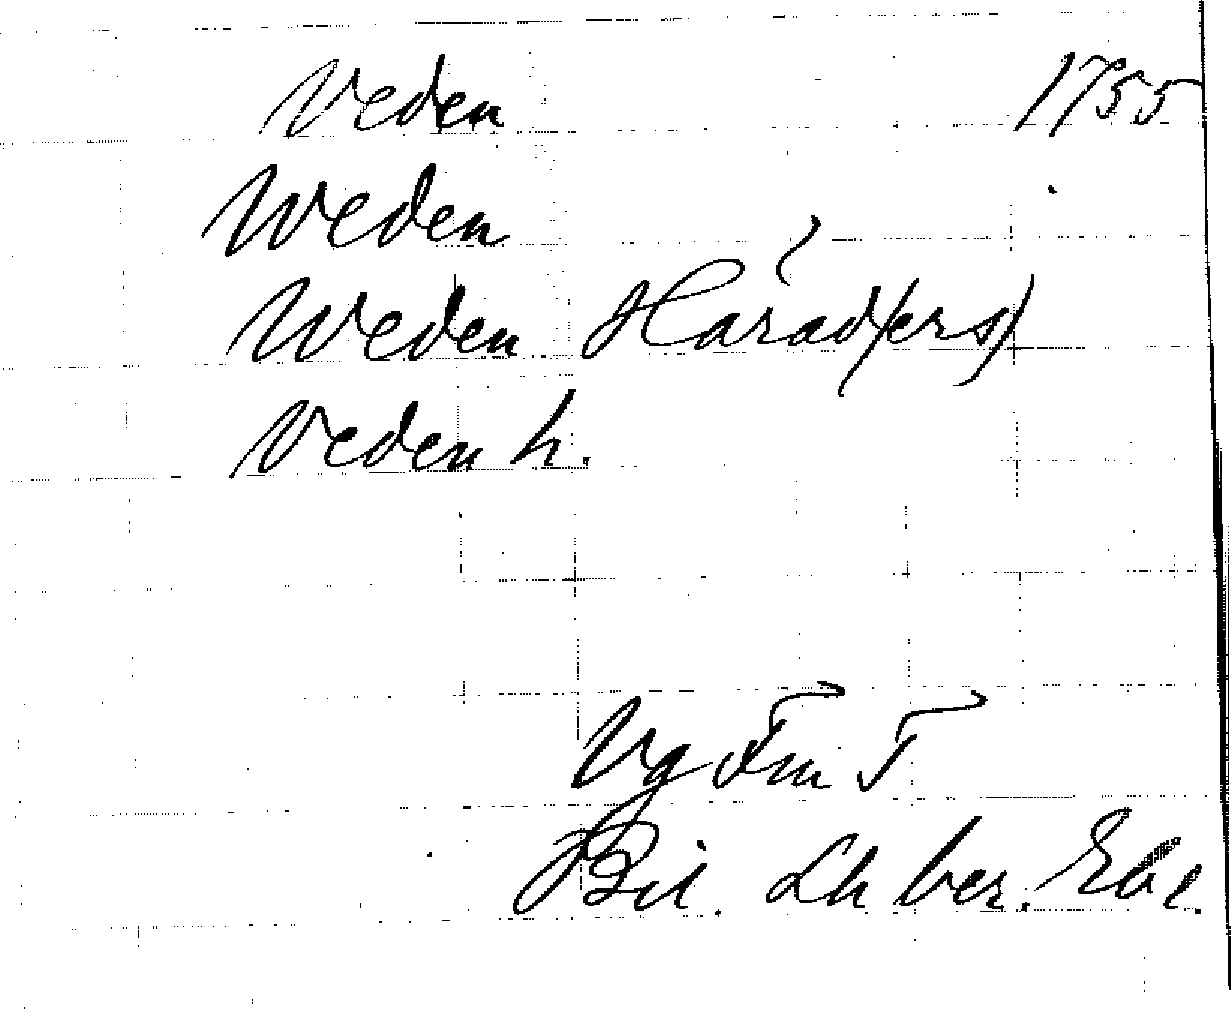 Veden 1755
Weden
Weden Härad(ers)
Veden h.
Vg Fm T
Bil. Lh ber. Elvl.